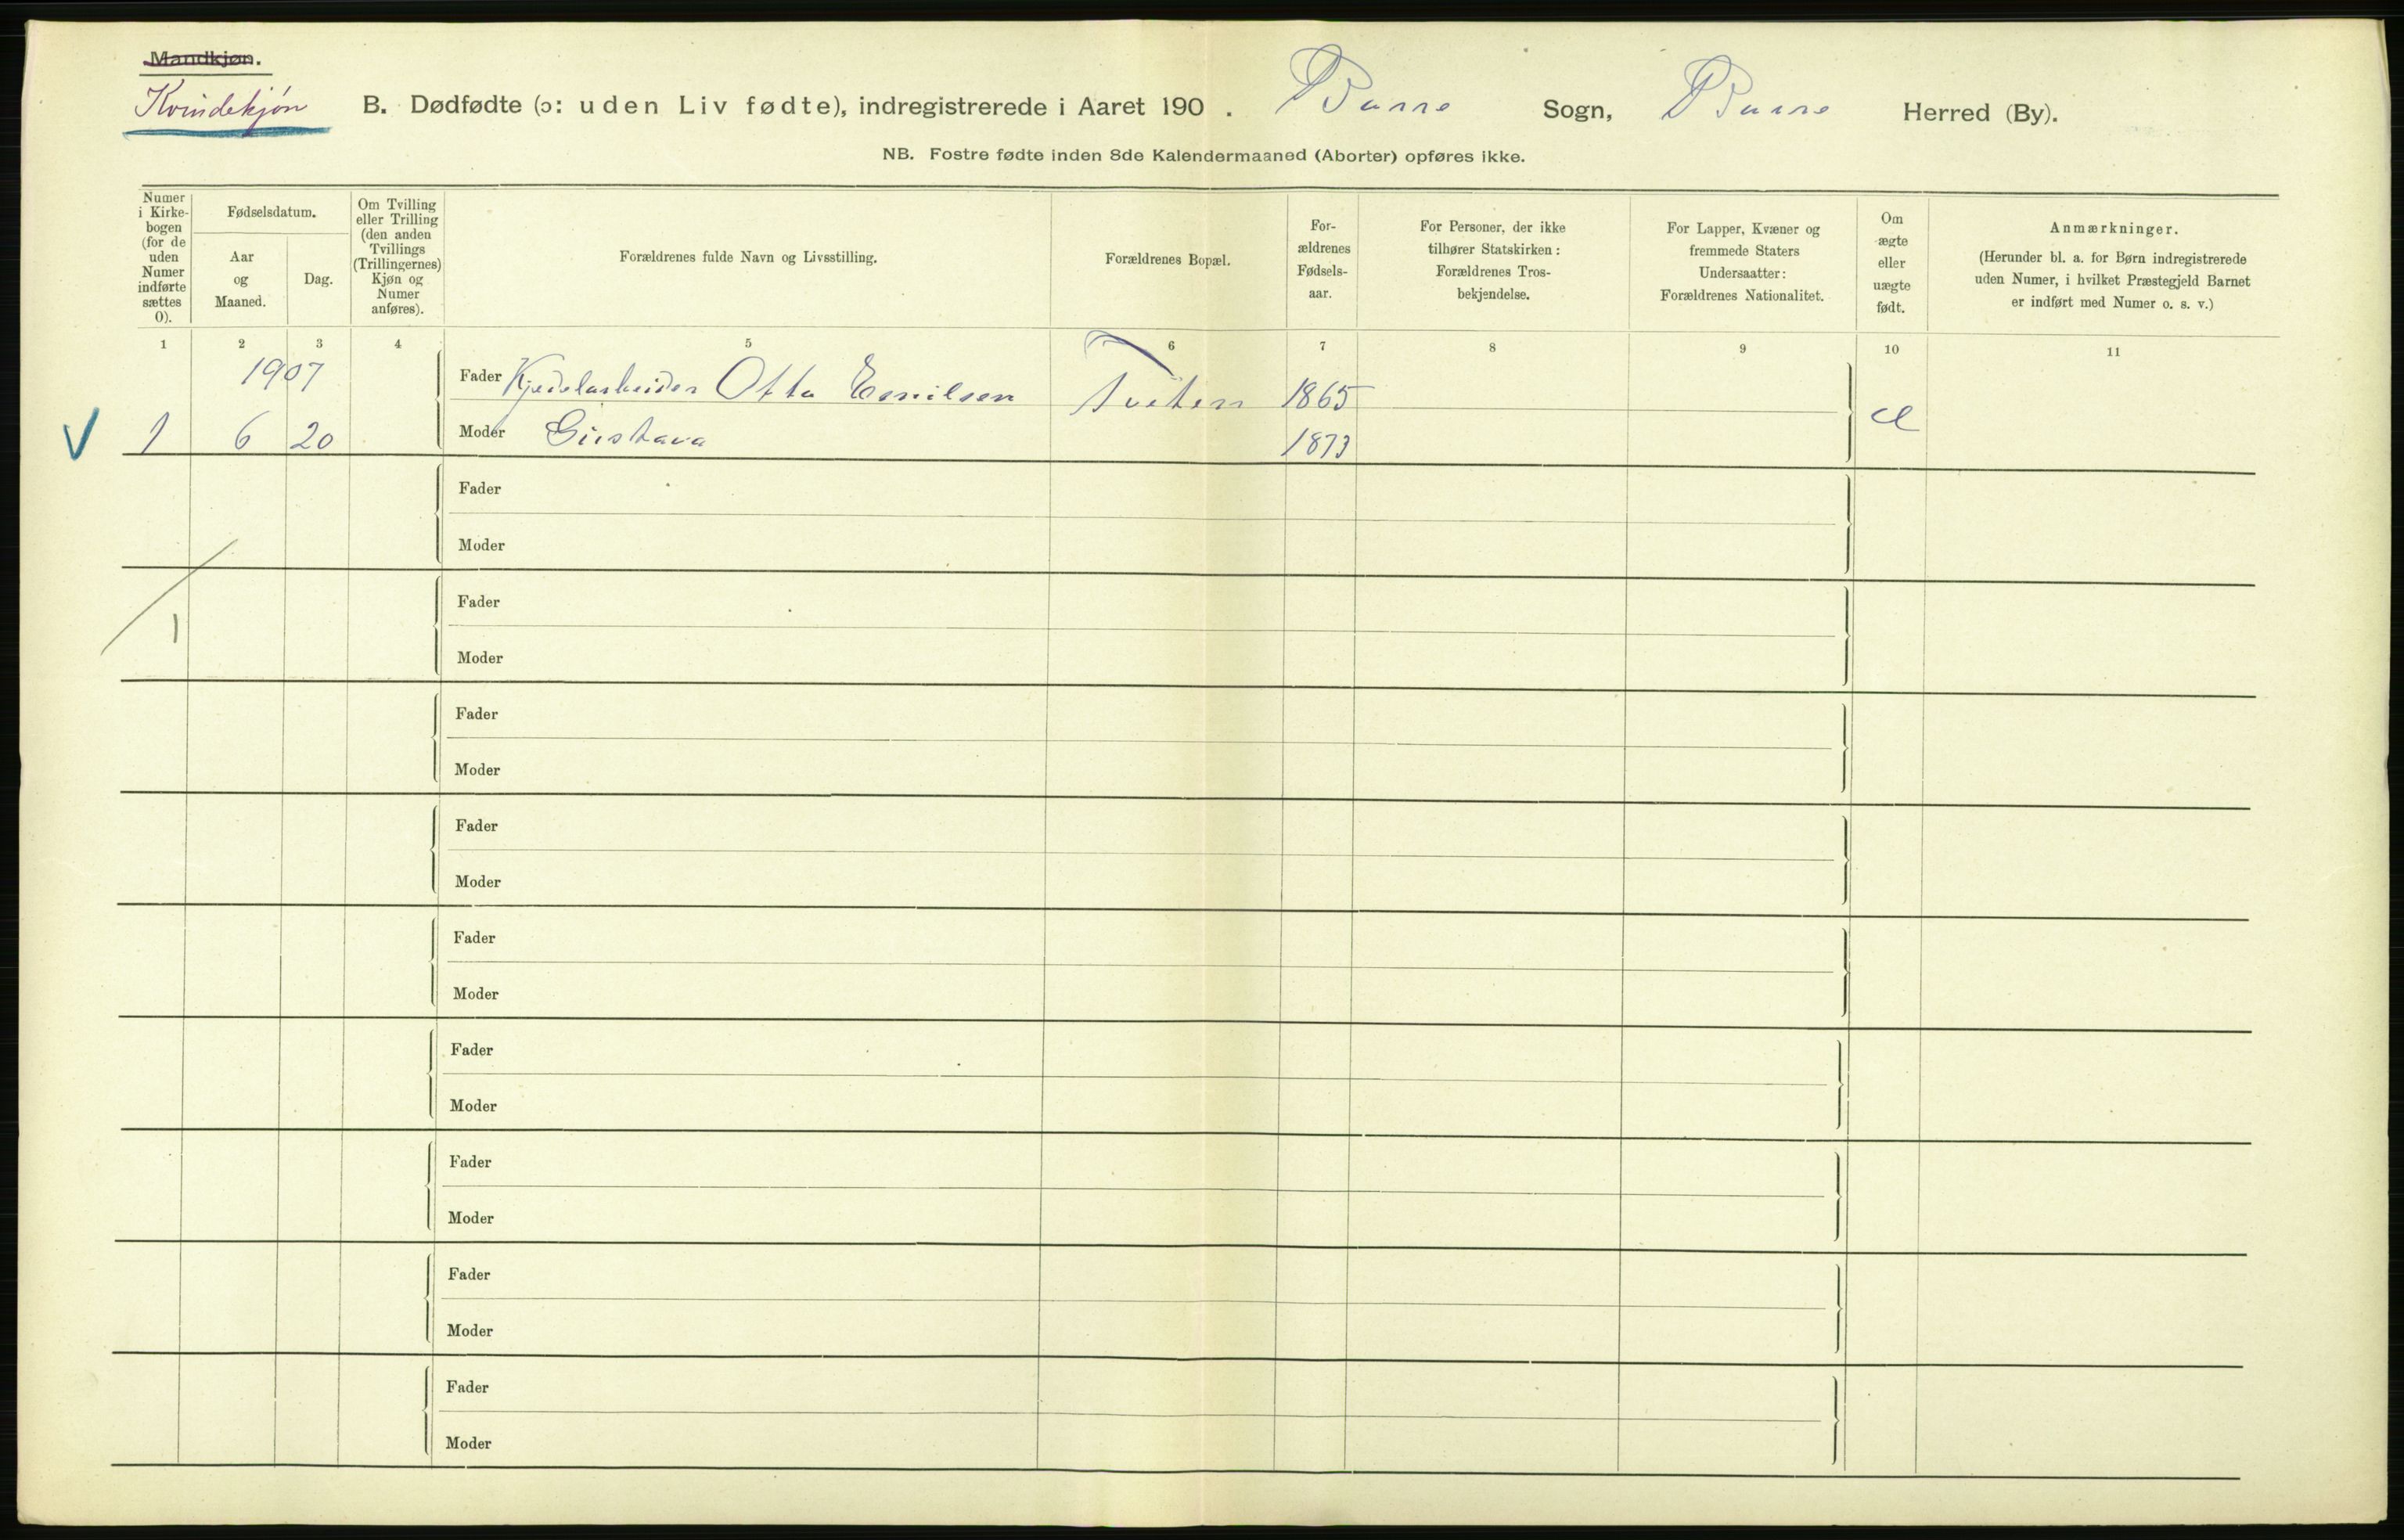 Mandkjøn.
Kvindekjøn
B. Dødfødte (ɔ: uden Liv fødte), indregistrerede i Aaret 190 . Borre Sogn, Borre Herred (By).
NB. Fostre fødte inden 8de Kalendermaaned (Aborter) opføres ikke.
Numer i Kirke- bogen (for de uden Numer indførte sættes 0).
Fødselsdatum.
Aar og Maaned.
Dag.
Om Tvilling eller Trilling (den anden Tvillings (Trillingernes) Kjøn og Numer anføres).
Forældrenes fulde Navn og Livsstilling.
Forældrenes Bopæl.
For- ældrenes Fødsels- aar.
For Personer, der ikke tilhører Statskirken: Forældrenes Tros- bekjendelse.
For Lapper, Kvæner og fremmede Staters Undersaatter: Forældrenes Nationalitet.
Om ægte eller uægte født.
Anmærkninger.
(Herunder bl. a. for Børn indregistrerede uden Numer, i hvilket Præstegjeld Barnet er indført med Numer o. s. v.)
1 2 3 4 5 6 7 8 9 10 11
1907
Fader Kjedelarbeider Otto Emilsen Tveten 1865
V 1 6 20 Moder Gustava 1873
Fader
Moder
Fader
1
Moder
Fader
Moder
Fader
Moder
Fader
Moder
Fader
Moder
Fader
Moder
Fader
Moder
Fader
Moder